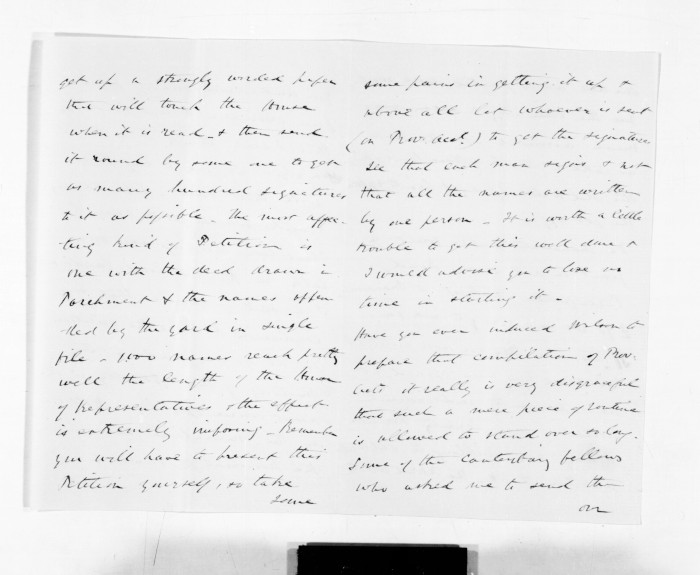 get up a strongly worded paper
that will touch the House
when it is read - & then send
it round by some one to get
as many hundred signatures
to it as possible - The most affec-
ting kind of Petition is
one with the deed drawn in
Parchment & the names appen
ded by the yard in single
file - 1000 names reach pretty
well the length of the House
of Representatives & the effect
is extremely imposing - Remember
you will have to present this
Petition yourself, so take
some
some pains in getting it up &
above all let whoever is sent
(on Prov. decl.) to get the signatures
see that each man signs & not
that all the names are written
by one person - It is worth a little
trouble to get this well done &
I would advise you to lose no
time in starting it -
Have you ever induced Wilson to
prepare that compilation of Prov.
Acts it really is very disgraceful
that such a mere piece of routine
is allowed to stand over so long.
Some of the Canterbury fellows
who asked me to send the
on